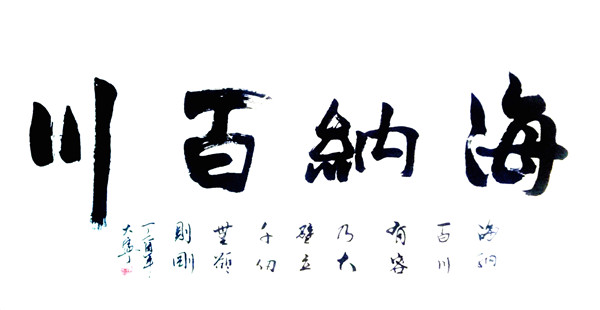 海納百川
海納
百川
有容
乃大
壁立
千仞
無欲
則剛
丁酉年